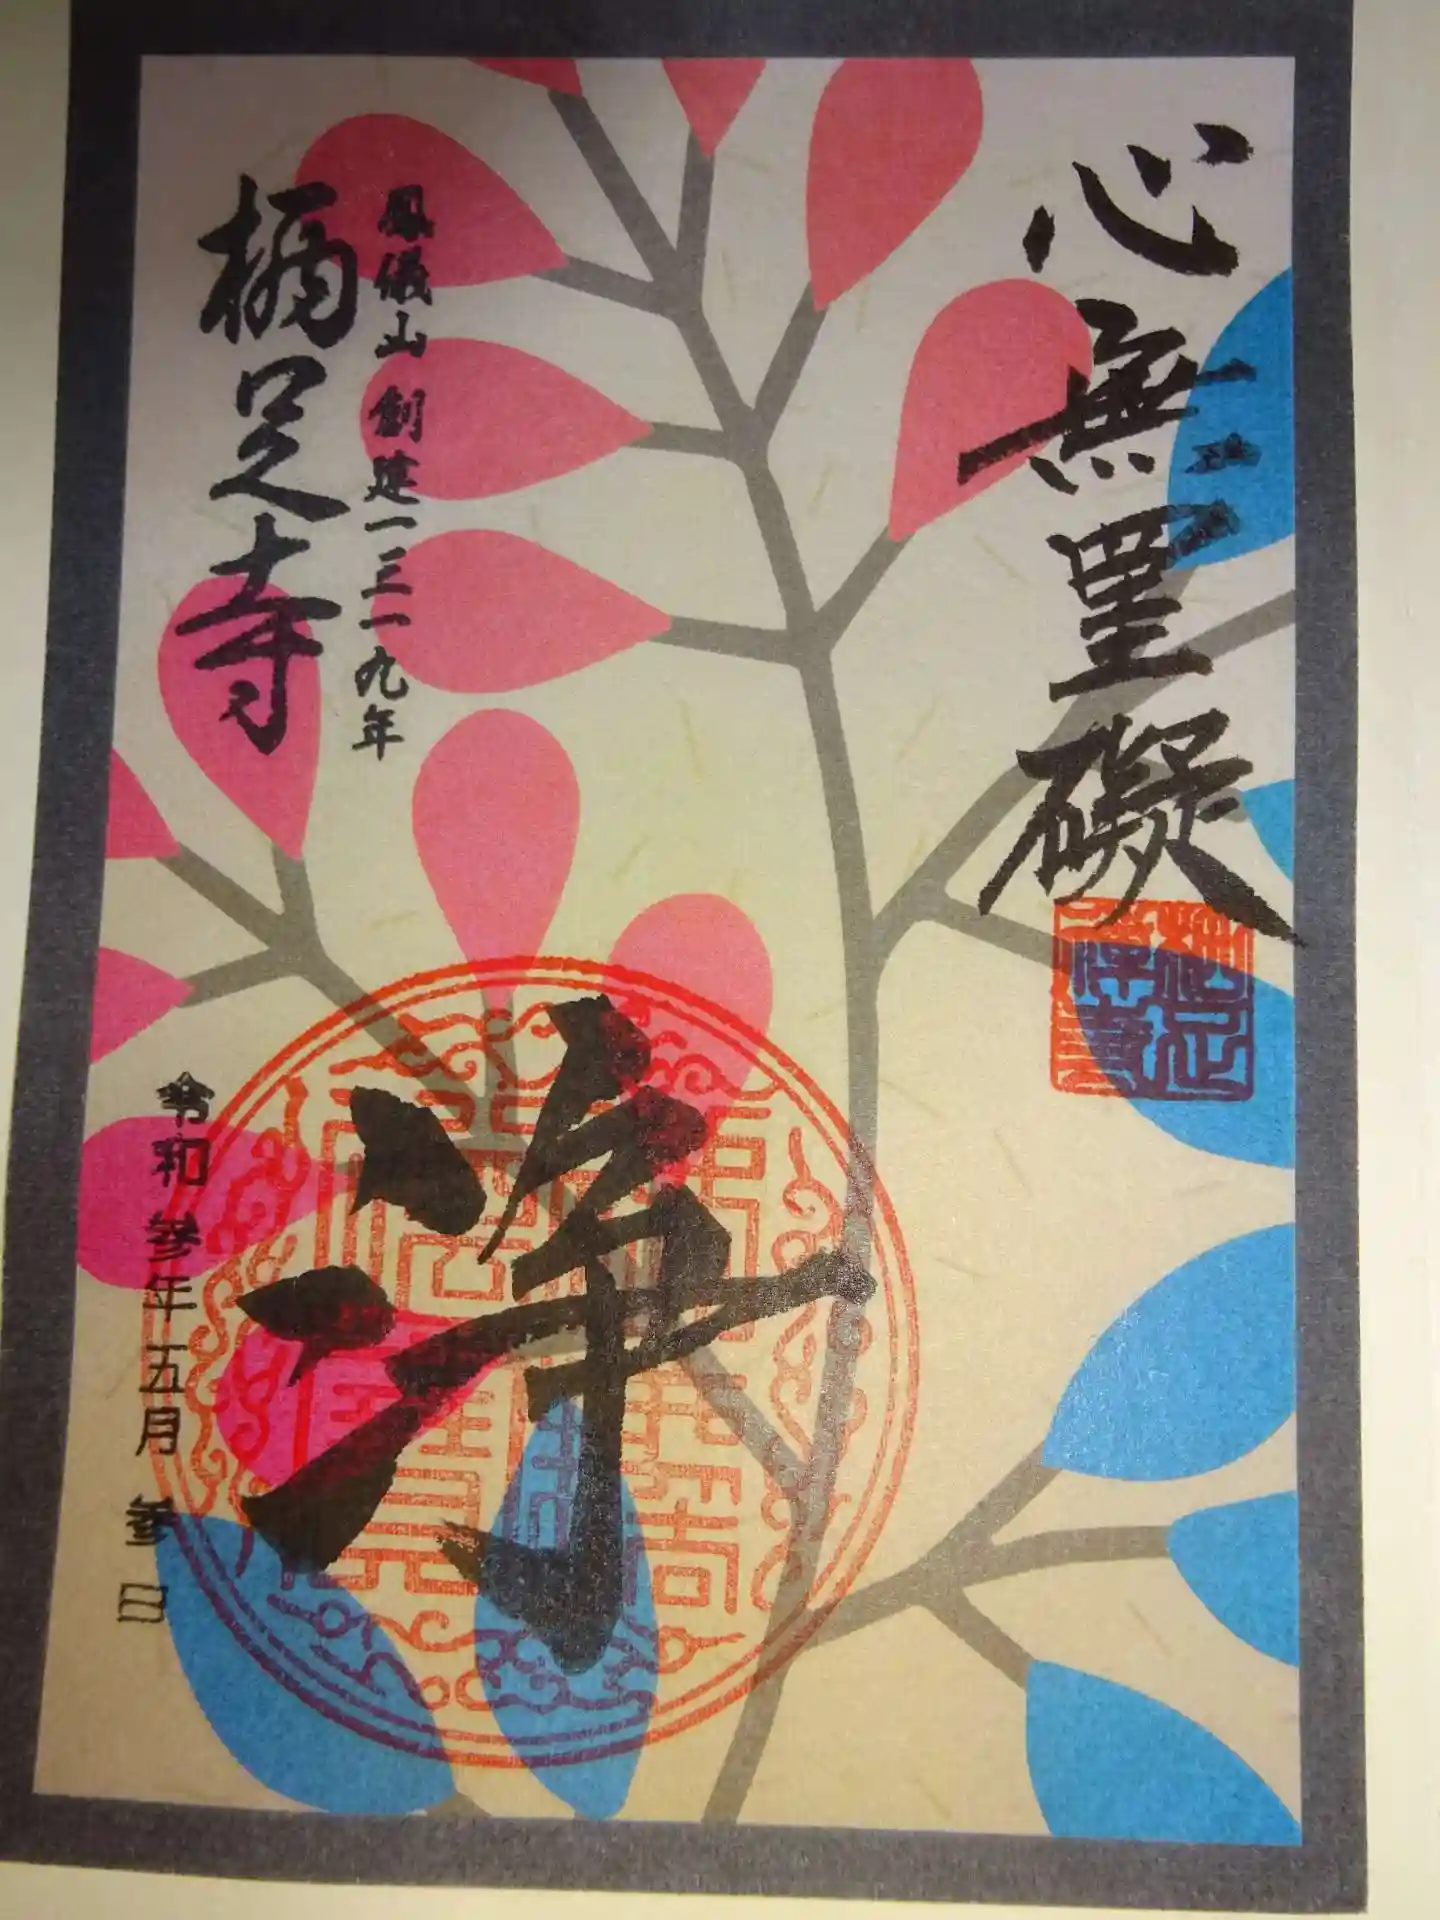 心無罣礙
浄
鳳儀山 創建一三一九年
栖足寺
令和参年五月参日